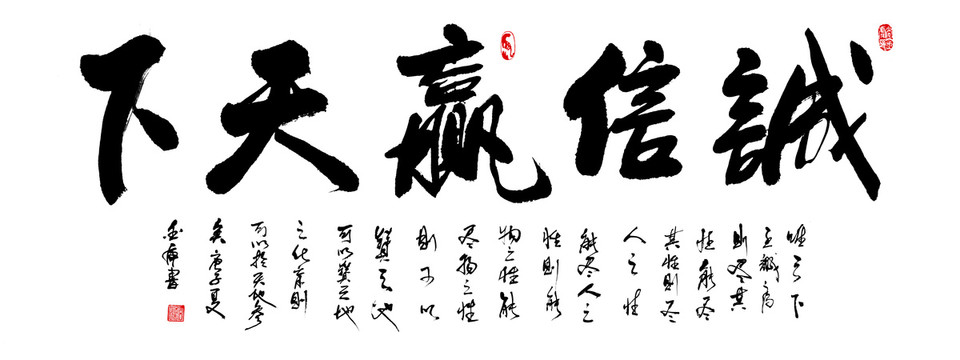 誠信贏天下
唯天下
至誠為
則尽其
性能尽
其性則尽
人之性
能尽人之
性則能
物之性能
尽物之性
則可以
贊天地
可以贊天地
之化育則
可以於天地参
矣庚子夏
書